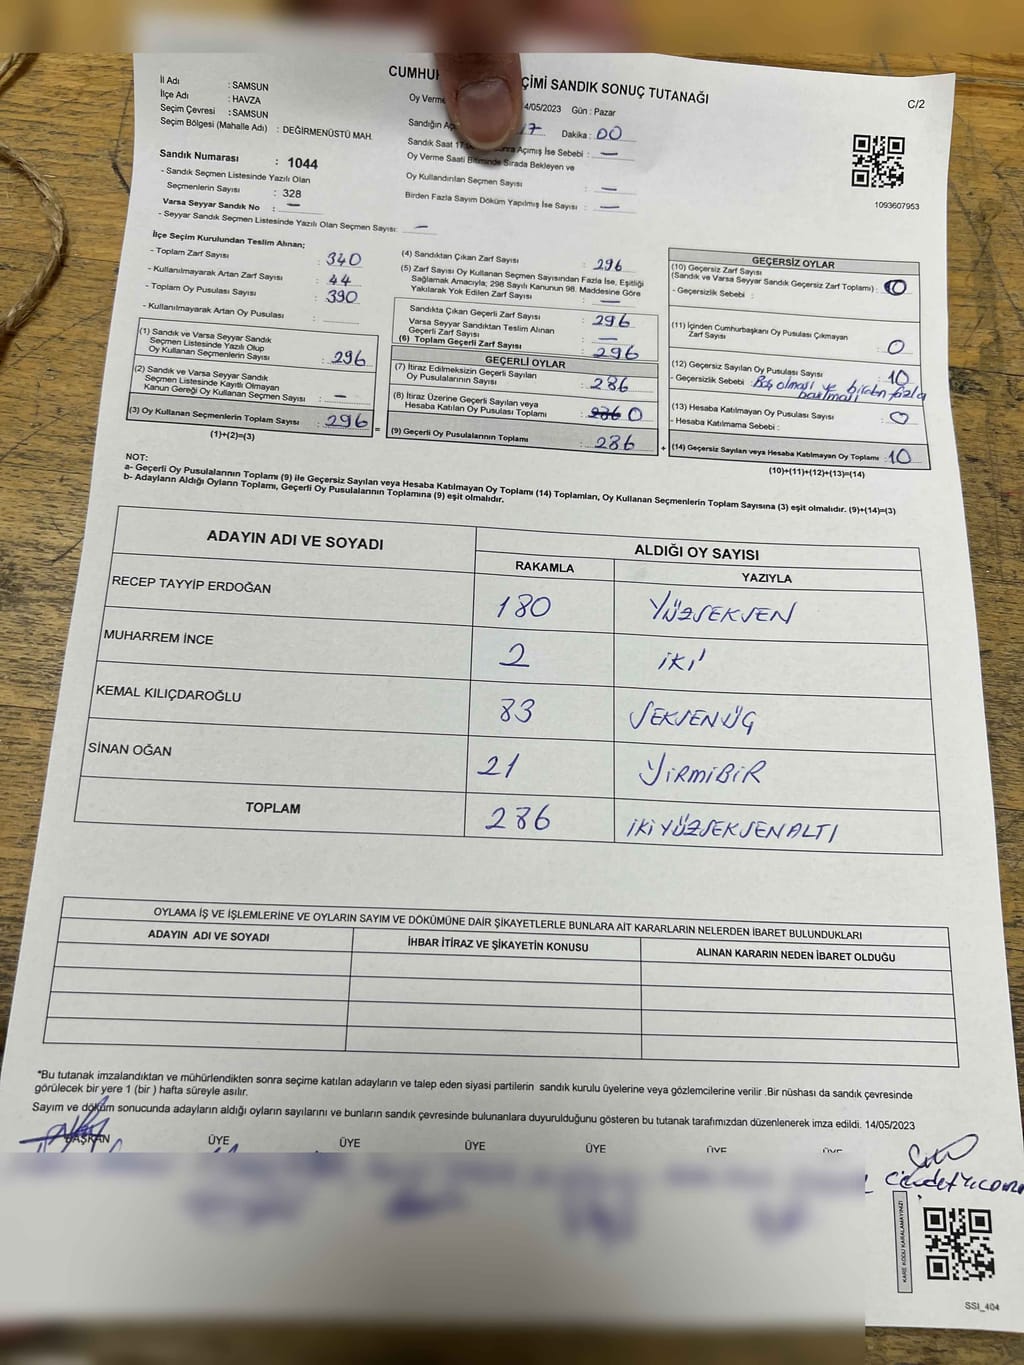 CUMHUR ÇİMİ SANDIK SONUÇ TUTANAĞI
C/2
İl Adı : SAMSUN
İlçe Adı : HAVZA
Seçim Çevresi : SAMSUN
Seçim Bölgesi (Mahalle Adı) : DEĞİRMENÜSTÜ MAH.
Oy Verme 4/05/2023 Gün : Pazar
Sandığın Aç 17 Dakika : 00
Sandık Saat 17 onra Açımış İse Sebebi : —
Oy Verme Saati Bitiminde Sırada Bekleyen ve
Oy Kullandırılan Seçmen Sayısı : —
Birden Fazla Sayım Döküm Yapılmış İse Sayısı : —
1093607953
Sandık Numarası : 1044
- Sandık Seçmen Listesinde Yazılı Olan
Seçmenlerin Sayısı : 328
Varsa Seyyar Sandık No : —
- Seyyar Sandık Seçmen Listesinde Yazılı Olan Seçmen Sayısı: —
İlçe Seçim Kurulundan Teslim Alınan;
- Toplam Zarf Sayısı : 340
- Kullanılmayarak Artan Zarf Sayısı : 44
- Toplam Oy Pusulası Sayısı : 390
- Kullanılmayarak Artan Oy Pusulası :
(1) Sandık ve Varsa Seyyar Sandık
Seçmen Listesinde Yazılı Olup
Oy Kullanan Seçmenlerin Sayısı : 296
(2) Sandık ve Varsa Seyyar Sandık
Seçmen Listesinde Kayıtlı Olmayan
Kanun Gereği Oy Kullanan Seçmen Sayısı : —
(3) Oy Kullanan Seçmenlerin Toplam Sayısı : 296
(1)+(2)=(3)
(4) Sandıktan Çıkan Zarf Sayısı : 296
(5) Zarf Sayısı Oy Kullanan Seçmen Sayısından Fazla İse, Eşitliği
Sağlamak Amacıyla; 298 Sayılı Kanunun 98. Maddesine Göre
Yakılarak Yok Edilen Zarf Sayısı : —
Sandıkta Çıkan Geçerli Zarf Sayısı : 296
Varsa Seyyar Sandıktan Teslim Alınan
Geçerli Zarf Sayısı : —
(6) Toplam Geçerli Zarf Sayısı : 296
GEÇERLİ OYLAR
(7) İtiraz Edilmeksizin Geçerli Sayılan
Oy Pusulalarının Sayısı : 286
(8) İtiraz Üzerine Geçerli Sayılan veya
Hesaba Katılan Oy Pusulası Toplamı : 286 0
=
(9) Geçerli Oy Pusulalarının Toplamı : 286
+
GEÇERSİZ OYLAR
(10) Geçersiz Zarf Sayısı
(Sandık ve Varsa Seyyar Sandık Geçersiz Zarf Toplamı) : 0
- Geçersizlik Sebebi :
(11) İçinden Cumhurbaşkanı Oy Pusulası Çıkmayan
Zarf Sayısı : 0
(12) Geçersiz Sayılan Oy Pusulası Sayısı : 10
- Geçersizlik Sebebi : Boş olması ve birden fazla
basılması
(13) Hesaba Katılmayan Oy Pusulası Sayısı : 0
- Hesaba Katılmama Sebebi :
(14) Geçersiz Sayılan veya Hesaba Katılmayan Oy Toplamı : 10
(10)+(11)+(12)+(13)=(14)
NOT:
a- Geçerli Oy Pusulalarının Toplamı (9) ile Geçersiz Sayılan veya Hesaba Katılmayan Oy Toplamı (14) Toplamları, Oy Kullanan Seçmenlerin Toplam Sayısına (3) eşit olmalıdır. (9)+(14)=(3)
b- Adayların Aldığı Oyların Toplamı, Geçerli Oy Pusulalarının Toplamına (9) eşit olmalıdır.
ADAYIN ADI VE SOYADI ALDIĞI OY SAYISI
RAKAMLA YAZIYLA
RECEP TAYYİP ERDOĞAN 180 YÜZSEKSEN
MUHARREM İNCE 2 İKİ
KEMAL KILIÇDAROĞLU 83 SEKSENÜÇ
SİNAN OĞAN 21 YİRMİBİR
TOPLAM 286 İKİYÜZSEKSENALTI
OYLAMA İŞ VE İŞLEMLERİNE VE OYLARIN SAYIM VE DÖKÜMÜNE DAİR ŞİKAYETLERLE BUNLARA AİT KARARLARIN NELERDEN İBARET BULUNDUKLARI
ADAYIN ADI VE SOYADI İHBAR İTİRAZ VE ŞİKAYETİN KONUSU ALINAN KARARIN NEDEN İBARET OLDUĞU
*Bu tutanak imzalandıktan ve mühürlendikten sonra seçime katılan adayların ve talep eden siyasi partilerin sandık kurulu üyelerine veya gözlemcilerine verilir .Bir nüshası da sandık çevresinde
görülecek bir yere 1 (bir ) hafta süreyle asılır.
Sayım ve döküm sonucunda adayların aldığı oyların sayılarını ve bunların sandık çevresinde bulunanlara duyurulduğunu gösteren bu tutanak tarafımızdan düzenlenerek imza edildi. 14/05/2023
BAŞKAN ÜYE ÜYE ÜYE ÜYE ÜYE ÜYE
KARE KODU KARALAMAYINIZ!
SSI_404